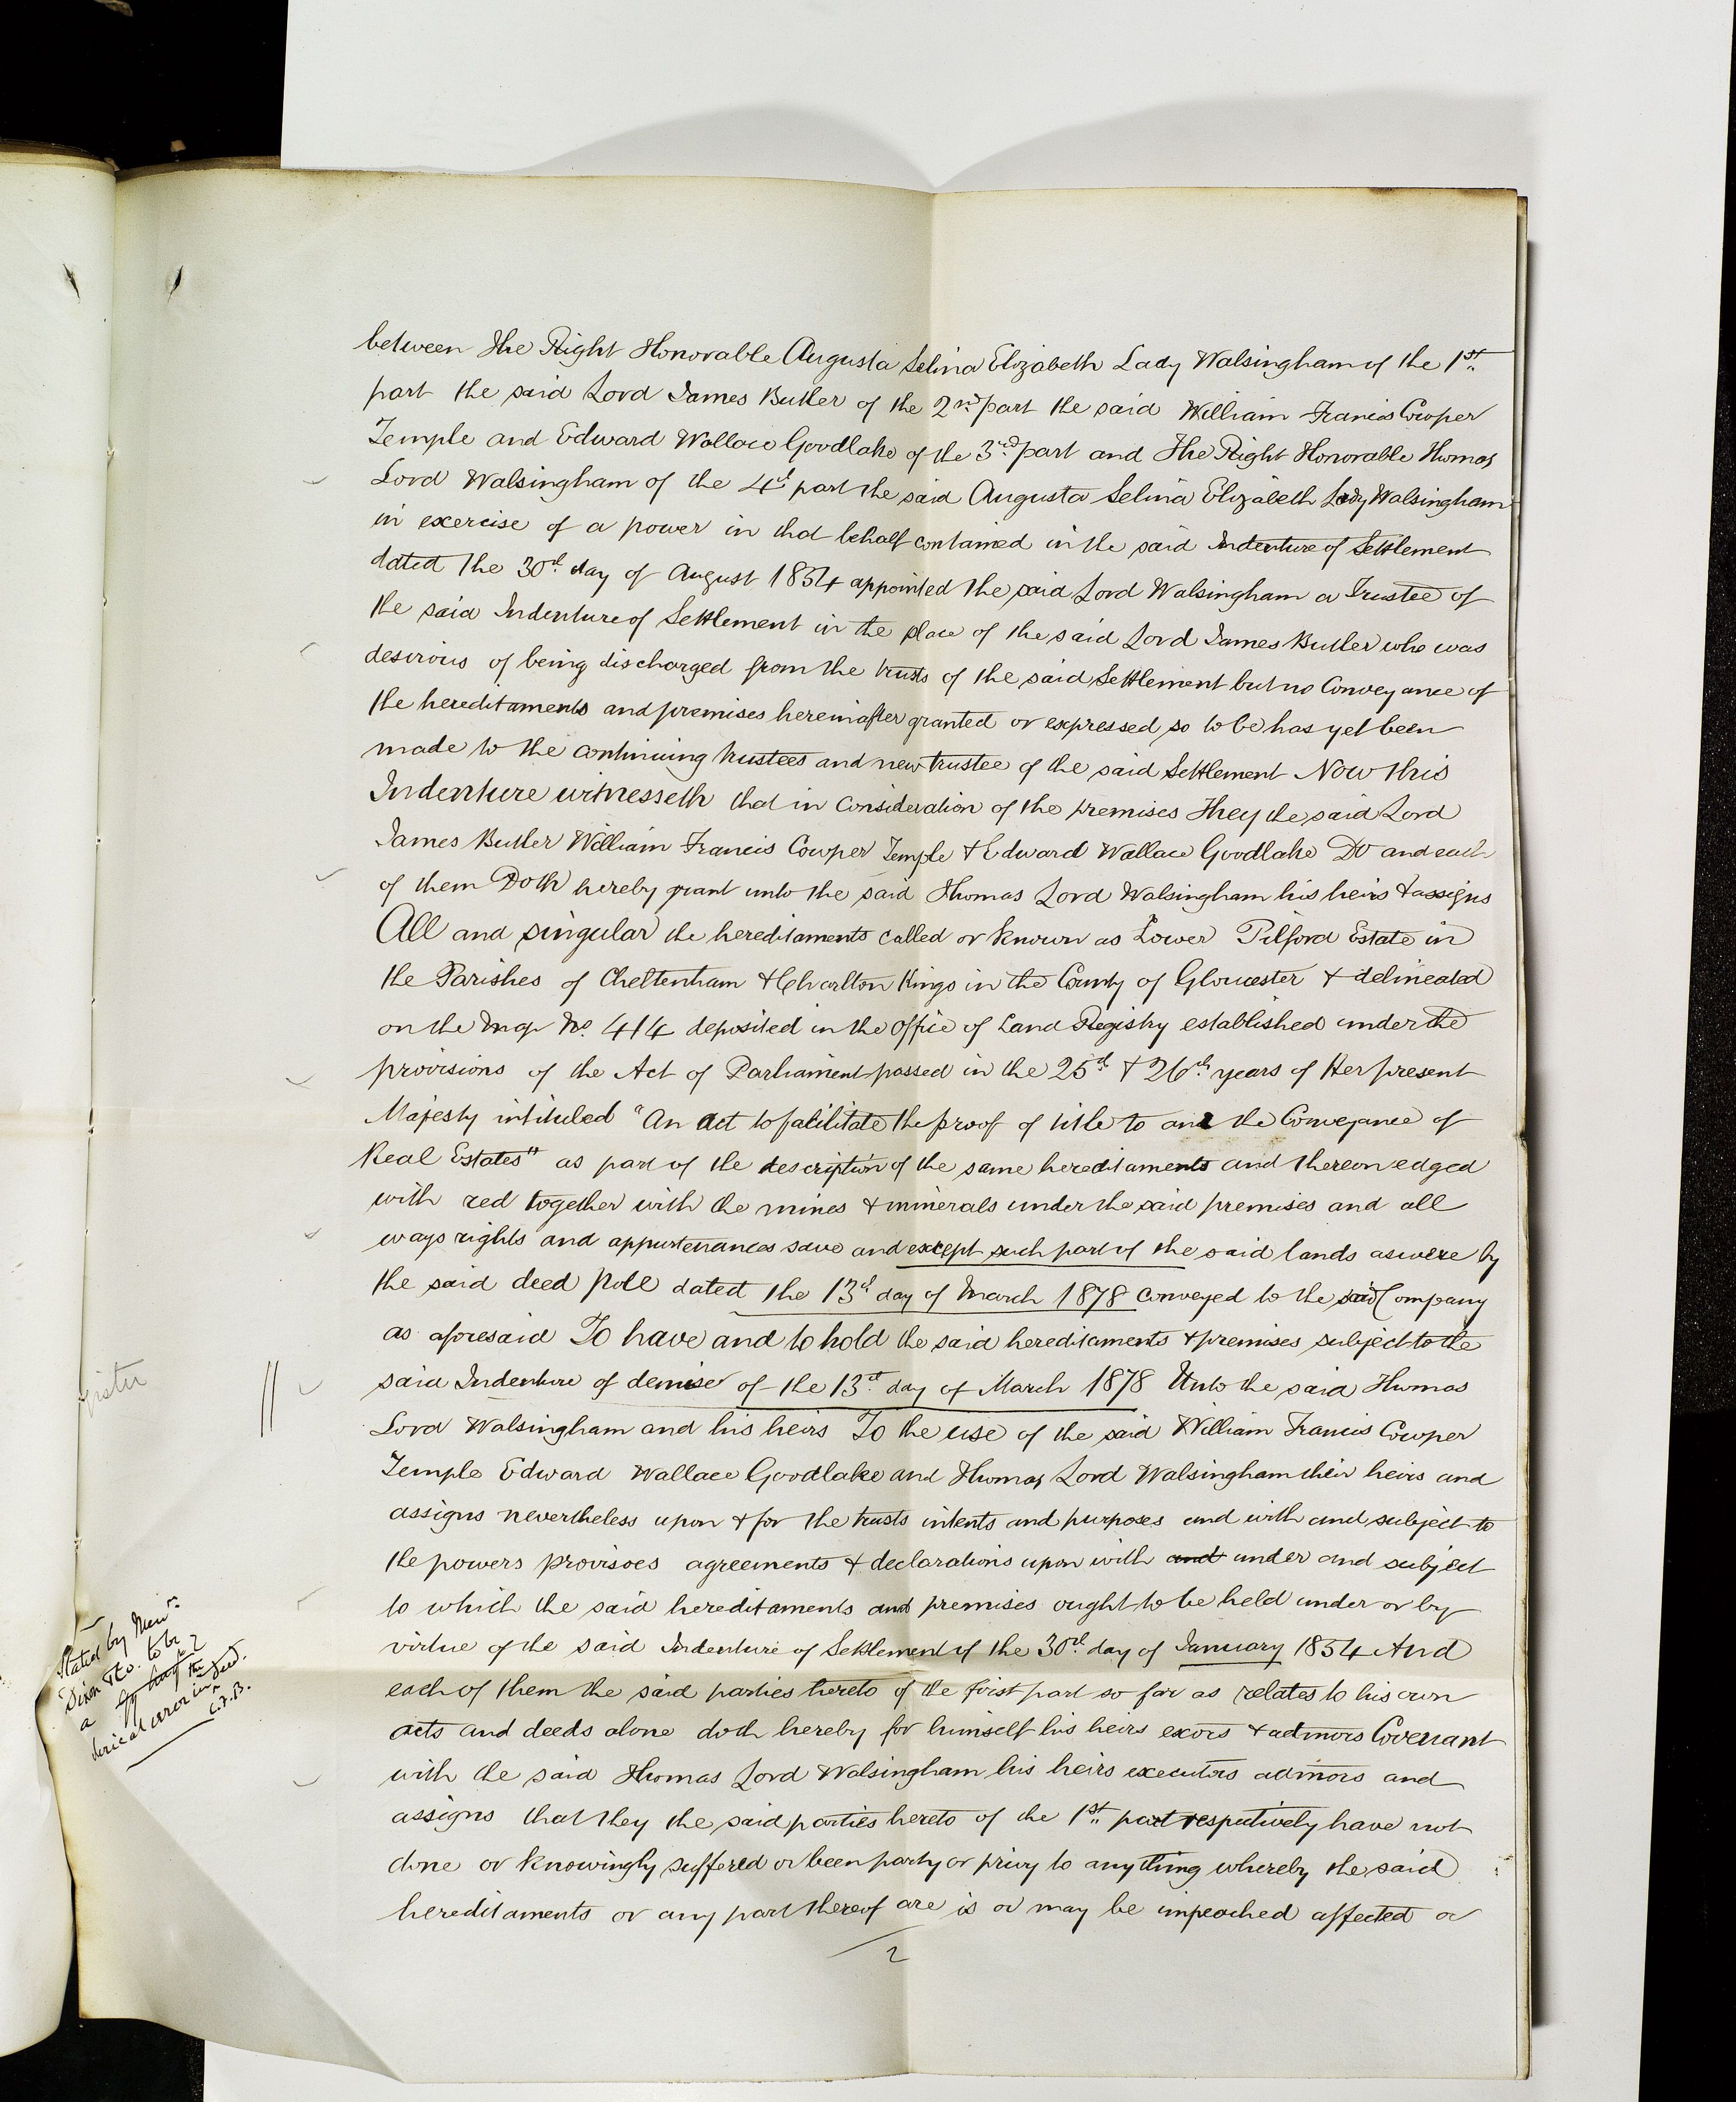 between The Right Honorable Augusta Selina Elizabeth Lady Walsingham of the 1st
part the said Lord James Butler of the 2nd part the said William Francis Cowper
Temple and Edward Wallace Goodlake of the 3rd part and The Right Honorable Thomas
Lord Walsingham of the 4th part the said Augusta Selina Elizabeth Lady Walsingham
in exercise of a power in that behalf contained in the said Indenture of Settlement
dated the 30th day of August 1854 appointed the said Lord Walsingham a Trustee of
the said Indenture of Settlement in the place of the said Lord James Butler who was
desirous of being discharged from the trusts of the said Settlement but no Conveyance of
the hereditaments and premises hereinafter granted or expressed so to be has yet been
made to the continuing trustees and new trustee of the said Settlement Now this
Indenture witnesseth that in consideration of the premises They the said Lord
James Butler William Francis Cowper Temple & Edward Wallace Goodlake Do and each
of them Doth hereby grant unto the said Thomas Lord Walsingham his heirs & assigns
All and singular the hereditaments called or known as Lower Pilford Estate in
the Parishes of Cheltenham & Charlton Kings in the County of Gloucester & delineated
on the Map No. 414 deposited in the Office of Land Registry established under the
provisions of the Act of Parliament passed in the 25th & 26th years of Her present
Majesty intituled "An Act to facilitate the proof of title to and the Conveyance of
Real Estates" as part of the description of the same hereditaments and thereon edged
with red together with the mines & minerals under the said premises and all
ways rights and appurtenances save and except such part of the said lands as were by
the said deed Poll dated the 13th day of March 1878 conveyed to the said Company
as aforesaid To have and to hold the said hereditaments & premises subject to the
said Indenture of demise of the 13th day of March 1878 Unto the said Thomas
Lord Walsingham and his heirs To the use of the said William Francis Cowper
Temple Edward Wallace Goodlake and Thomas Lord Walsingham their heirs and
assigns nevertheless upon & for the trusts intents and purposes and with and subject to
the powers provisoes agreements & declarations upon with and under and subject
to which the said hereditaments and premises ought to be held under or by
virtue of the said Indenture of Settlement of the 30th day of January 1854 And
each of them the said parties hereto of the first part so far as relates to his own
acts and deeds alone doth hereby for himself his heirs exors & admors Covenant
with the said Thomas Lord Walsingham his heirs executors admors and
assigns that they the said parties hereto of the 1st part respectively have not
done or knowingly suffered or been party or privy to any thing whereby the said
hereditaments or any part thereof are is or may be impeached affected or
2
Stated by
Dixon & Co. to be
a
clerical error in the deed.
C.F.B.